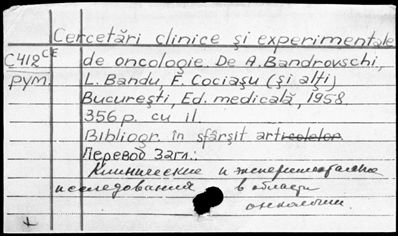 Cercetări clinice şi experimentale
C412CE de oncologie. De A. Bandrovschi,
рум. L. Bandu, E. Cociaşu (şi alţi)
Bucureşti, Ed. medicală, 1958
356 p. cu il.
Bibliogr. în sfârşit articolelor
Перевод Загл.:
Клинические и экспериментальные
исследования в области
онкологии.